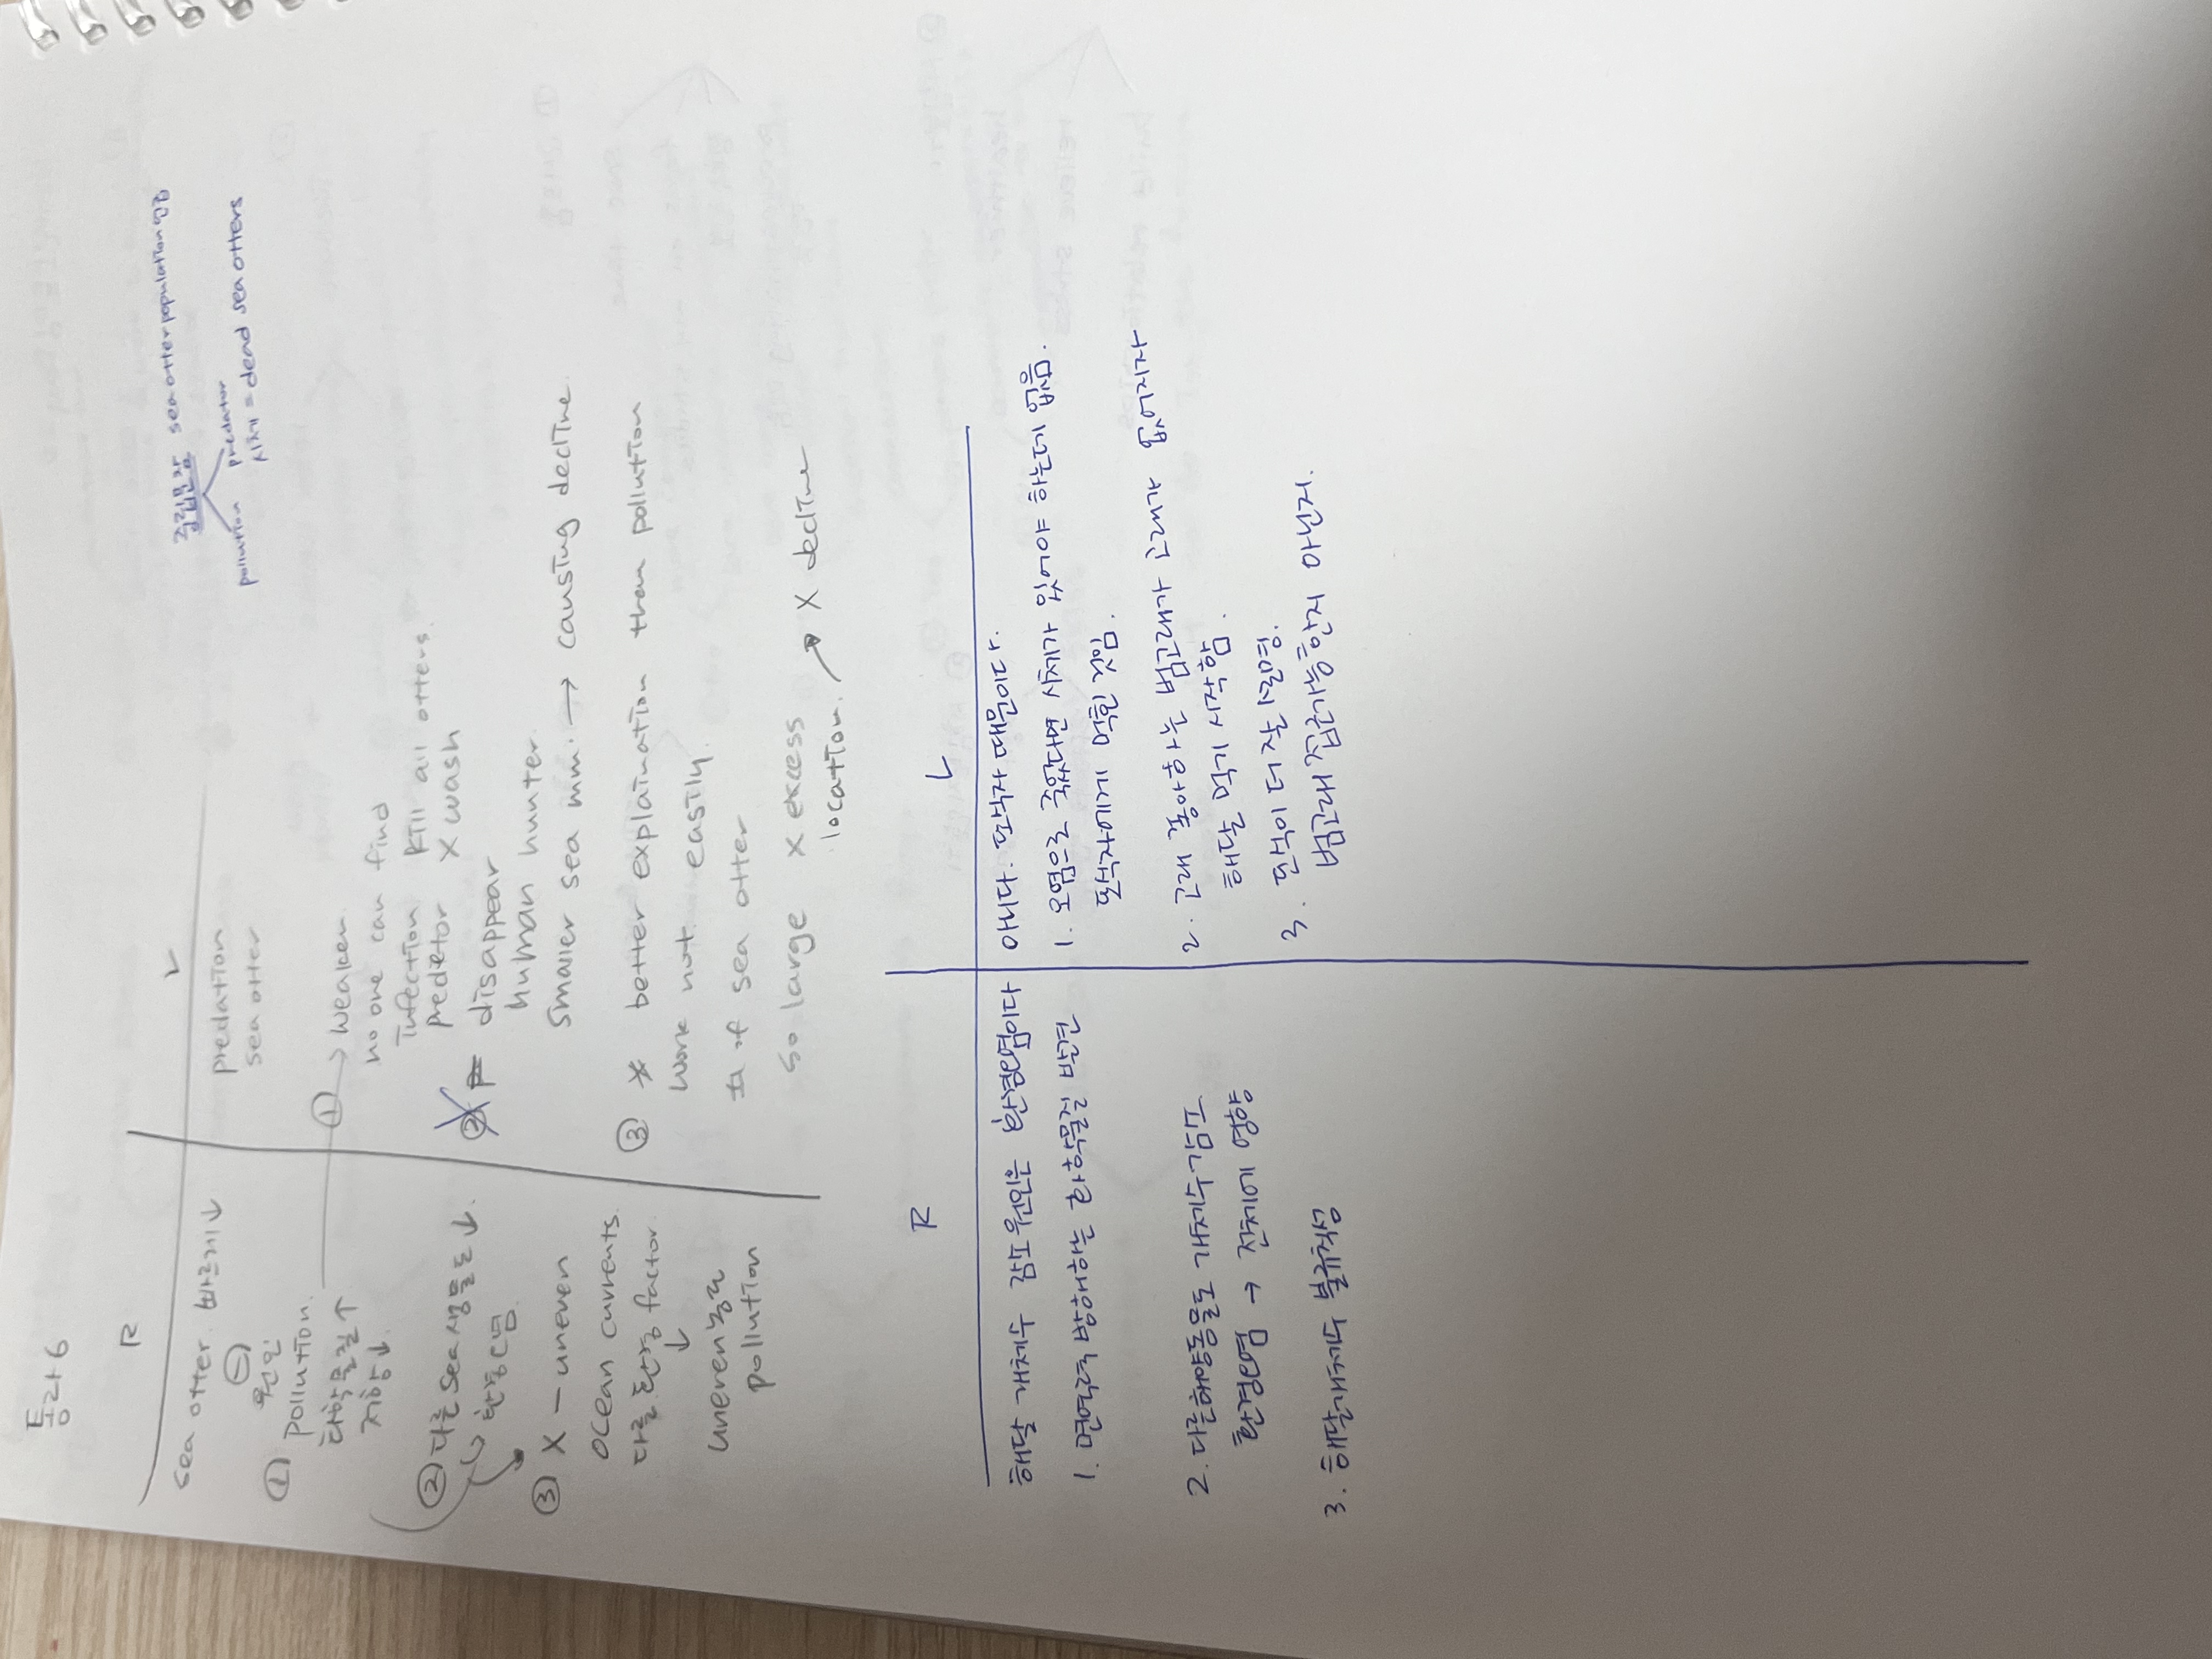 통라6
R
sea otter. 빠르게↓
원인
① pollution.
화학물질↑
저항↓.
② 다른 sea 생물도↓.
③ X - uneven
ocean currents.
다른 환경 factor.
↓
uneven 농도
pollution
L
predation
sea otter
① → weaken.
no one can find
infection kill all otters.
predetor X wash
② disappear
human hunter.
smaller sea mm. → causing decline.
③ * better explaination than pollution
work not easily.
# of sea otter
so large X excess
location. → X decline
sea otter population 감소
pollution predator
시체 = dead sea otters
R
해달 개체 수 급감 원인은 환경오염이다
1. 면역력 방해하는 화학물질 발견
2. 다른해양동물도 개체수 급감
환경오염 → 전체에 영향
3. 해달개체수 불규칙성
L
아니다. 포식자 때문이다.
1. 오염으로 죽었다면 시체가 있어야 하는데 없음.
포식자에게 먹힌 것임.
2. 고래
해달을 먹기 시작함.
3. 포식이 더 잘 어울림.